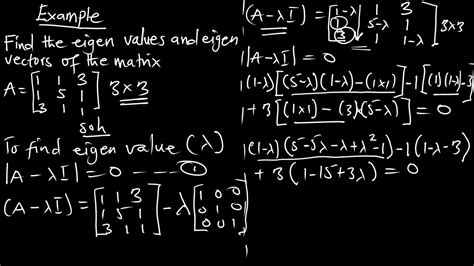 Example
Find the eigen values and eigen
vectors of the matrix
A = [1 1 3
1 5 1
3 1 1] 3×3
soln
To find eigen value (λ)
|A-λI| = 0 ---- ①
(A-λI) = [1 1 3
1 5 1
3 1 1] - λ [1 0 0
0 1 0
0 0 1]
(A-λI) = [1-λ 1 3
1 5-λ 1
3 1 1-λ] 3×3
|A-λI| = 0
(1-λ)[(5-λ)(1-λ)-(1×1)]-1[(1)(1-λ)-3]
+3[(1×1)-(3)(5-λ)] = 0
(1-λ)(5-5λ-λ+λ²-1)-1(1-λ-3)
+3(1-15+3λ) = 0